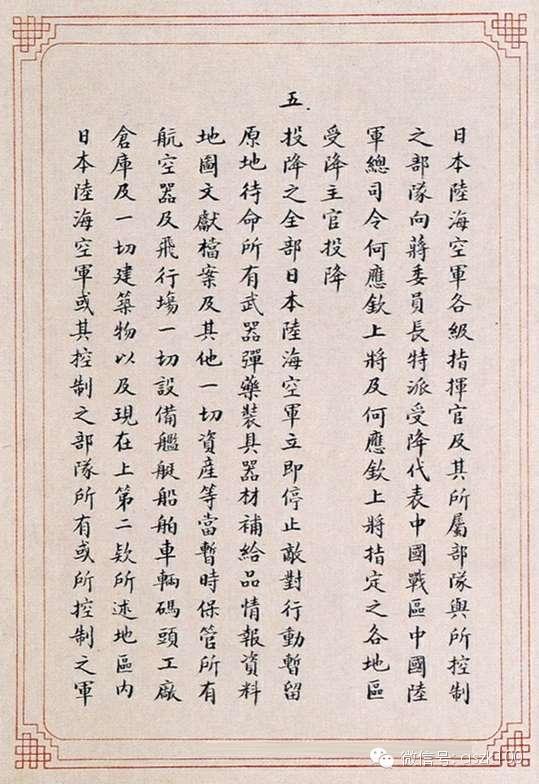 日本陸海空軍各級指揮官及其所屬部隊與所控制
之部隊向蔣委員長特派受降代表中國戰區中國陸
軍總司令何應欽上將及何應欽上將指定之各地區
受降主官投降
五.投降之全部日本陸海空軍立即停止敵對行動暫留
原地待命所有武器彈藥裝具器材補給品情報資料
地圖文獻檔案及其他一切資產等當暫時保管所有
航空器及飛行場一切設備艦艇船舶車輛碼頭工廠
倉庫及一切建築物以及現在上第二欵所述地區內
日本陸海空軍或其控制之部隊所有或所控制之軍
微信号: